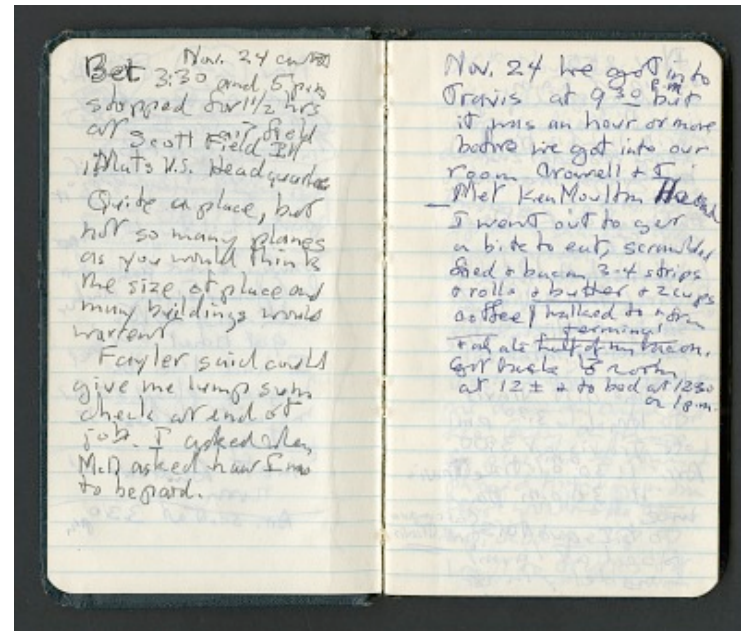 Nov. 24
Bet 3:30 and 5 pm
stopped for 1 1/2 hrs
at Scott Field Ill
Mats U.S. Headquarters
Quite a place, but
not so many planes
as you would think
the size of place and
many buildings would
warrent
Fayler said could
give me lump sum
check at end of
job. I asked when
McD asked how I was
to be paid.
Nov. 24 We got into
Travis at 9 30 p.m but
it was an hour or more
before we got into our
room Crowell + I
Met Ken Moulton He and
I went out to get
a bite to eat, scrambled
+ bacon 3-4 strips
+ rolls + butter + 2 cups
coffee I walked to
terminal
+ ate half of my bacon.
Got back to room
at 12 ± + to bed at 1230
or 1 p.m.